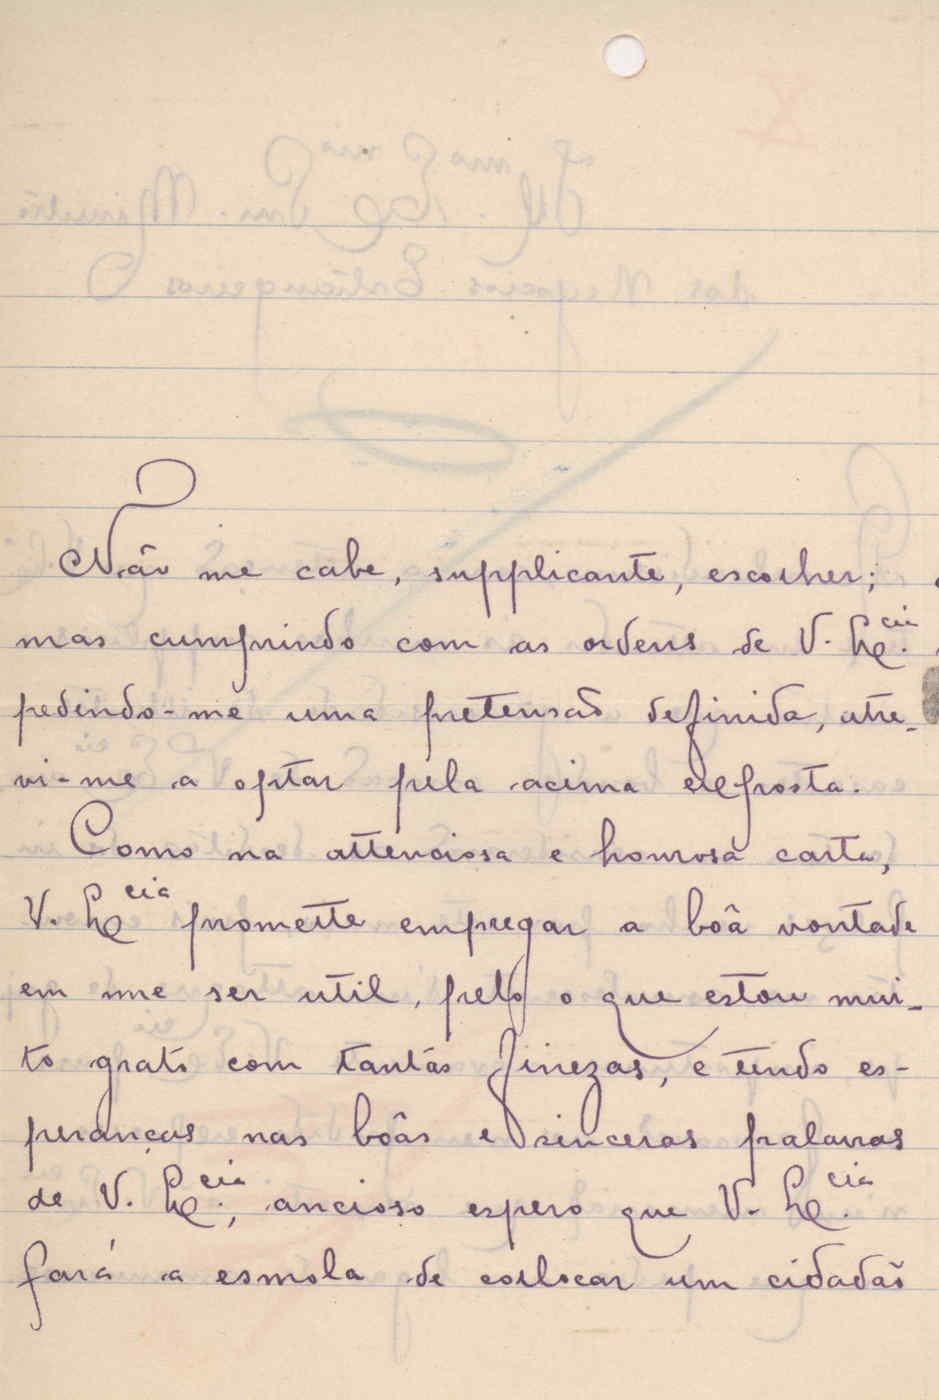 Não me cabe, supplicante, escolher;
mas cumprindo com as ordens de V. Ex.cia
pedindo-me uma pretensão definida, atre-
vi-me a optar pela acima exposta.
Como na attenciosa e honrosa carta,
V. Excia promette empregar a boâ vontade
em me ser util, pelo o que estou mui-
to grato com tantas finezas, e tendo es-
peranças nas boâs e sinceras palavras
de V. Ex.cia, ancioso espero que V. Ex.cia
fará a esmola de collocar um cidadão